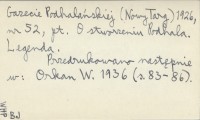 Gazecie Podhalańskiej (Nowy Targ) 1926,
nr 52, pt. O stworzeniu Podhala.
Legenda.
Przedrukowano następnie
w: Orkan W. 1936 (s. 83-86).